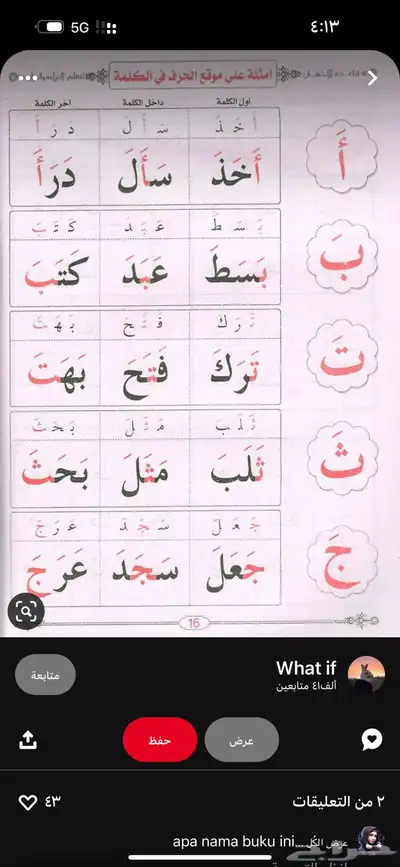 ٤:١٣
5G
أمثلة على موقع الحرف في الكلمة
أول الكلمة داخل الكلمة آخر الكلمة
أَ
أَ خَ ذَ سَ أَ لَ دَ رَ أَ
أَخَذَ سَأَلَ دَرَأَ
بَ
بَ سَ طَ عَ بَ دَ كَ تَ بَ
بَسَطَ عَبَدَ كَتَبَ
تَ
تَ رَ كَ فَ تَ حَ بَ هَ تَ
تَرَكَ فَتَحَ بَهَتَ
ثَ
ثَ لَ بَ مَ ثَ لَ بَ حَ ثَ
ثَلَبَ مَثَلَ بَحَثَ
جَ
جَ عَ لَ سَ جَ دَ عَ رَ جَ
جَعَلَ سَجَدَ عَرَجَ
16
What if
٤١ألف متابعين
متابعة
عرض
حفظ
٢ من التعليقات
٤٣
عرض الكل
apa nama buku ini...